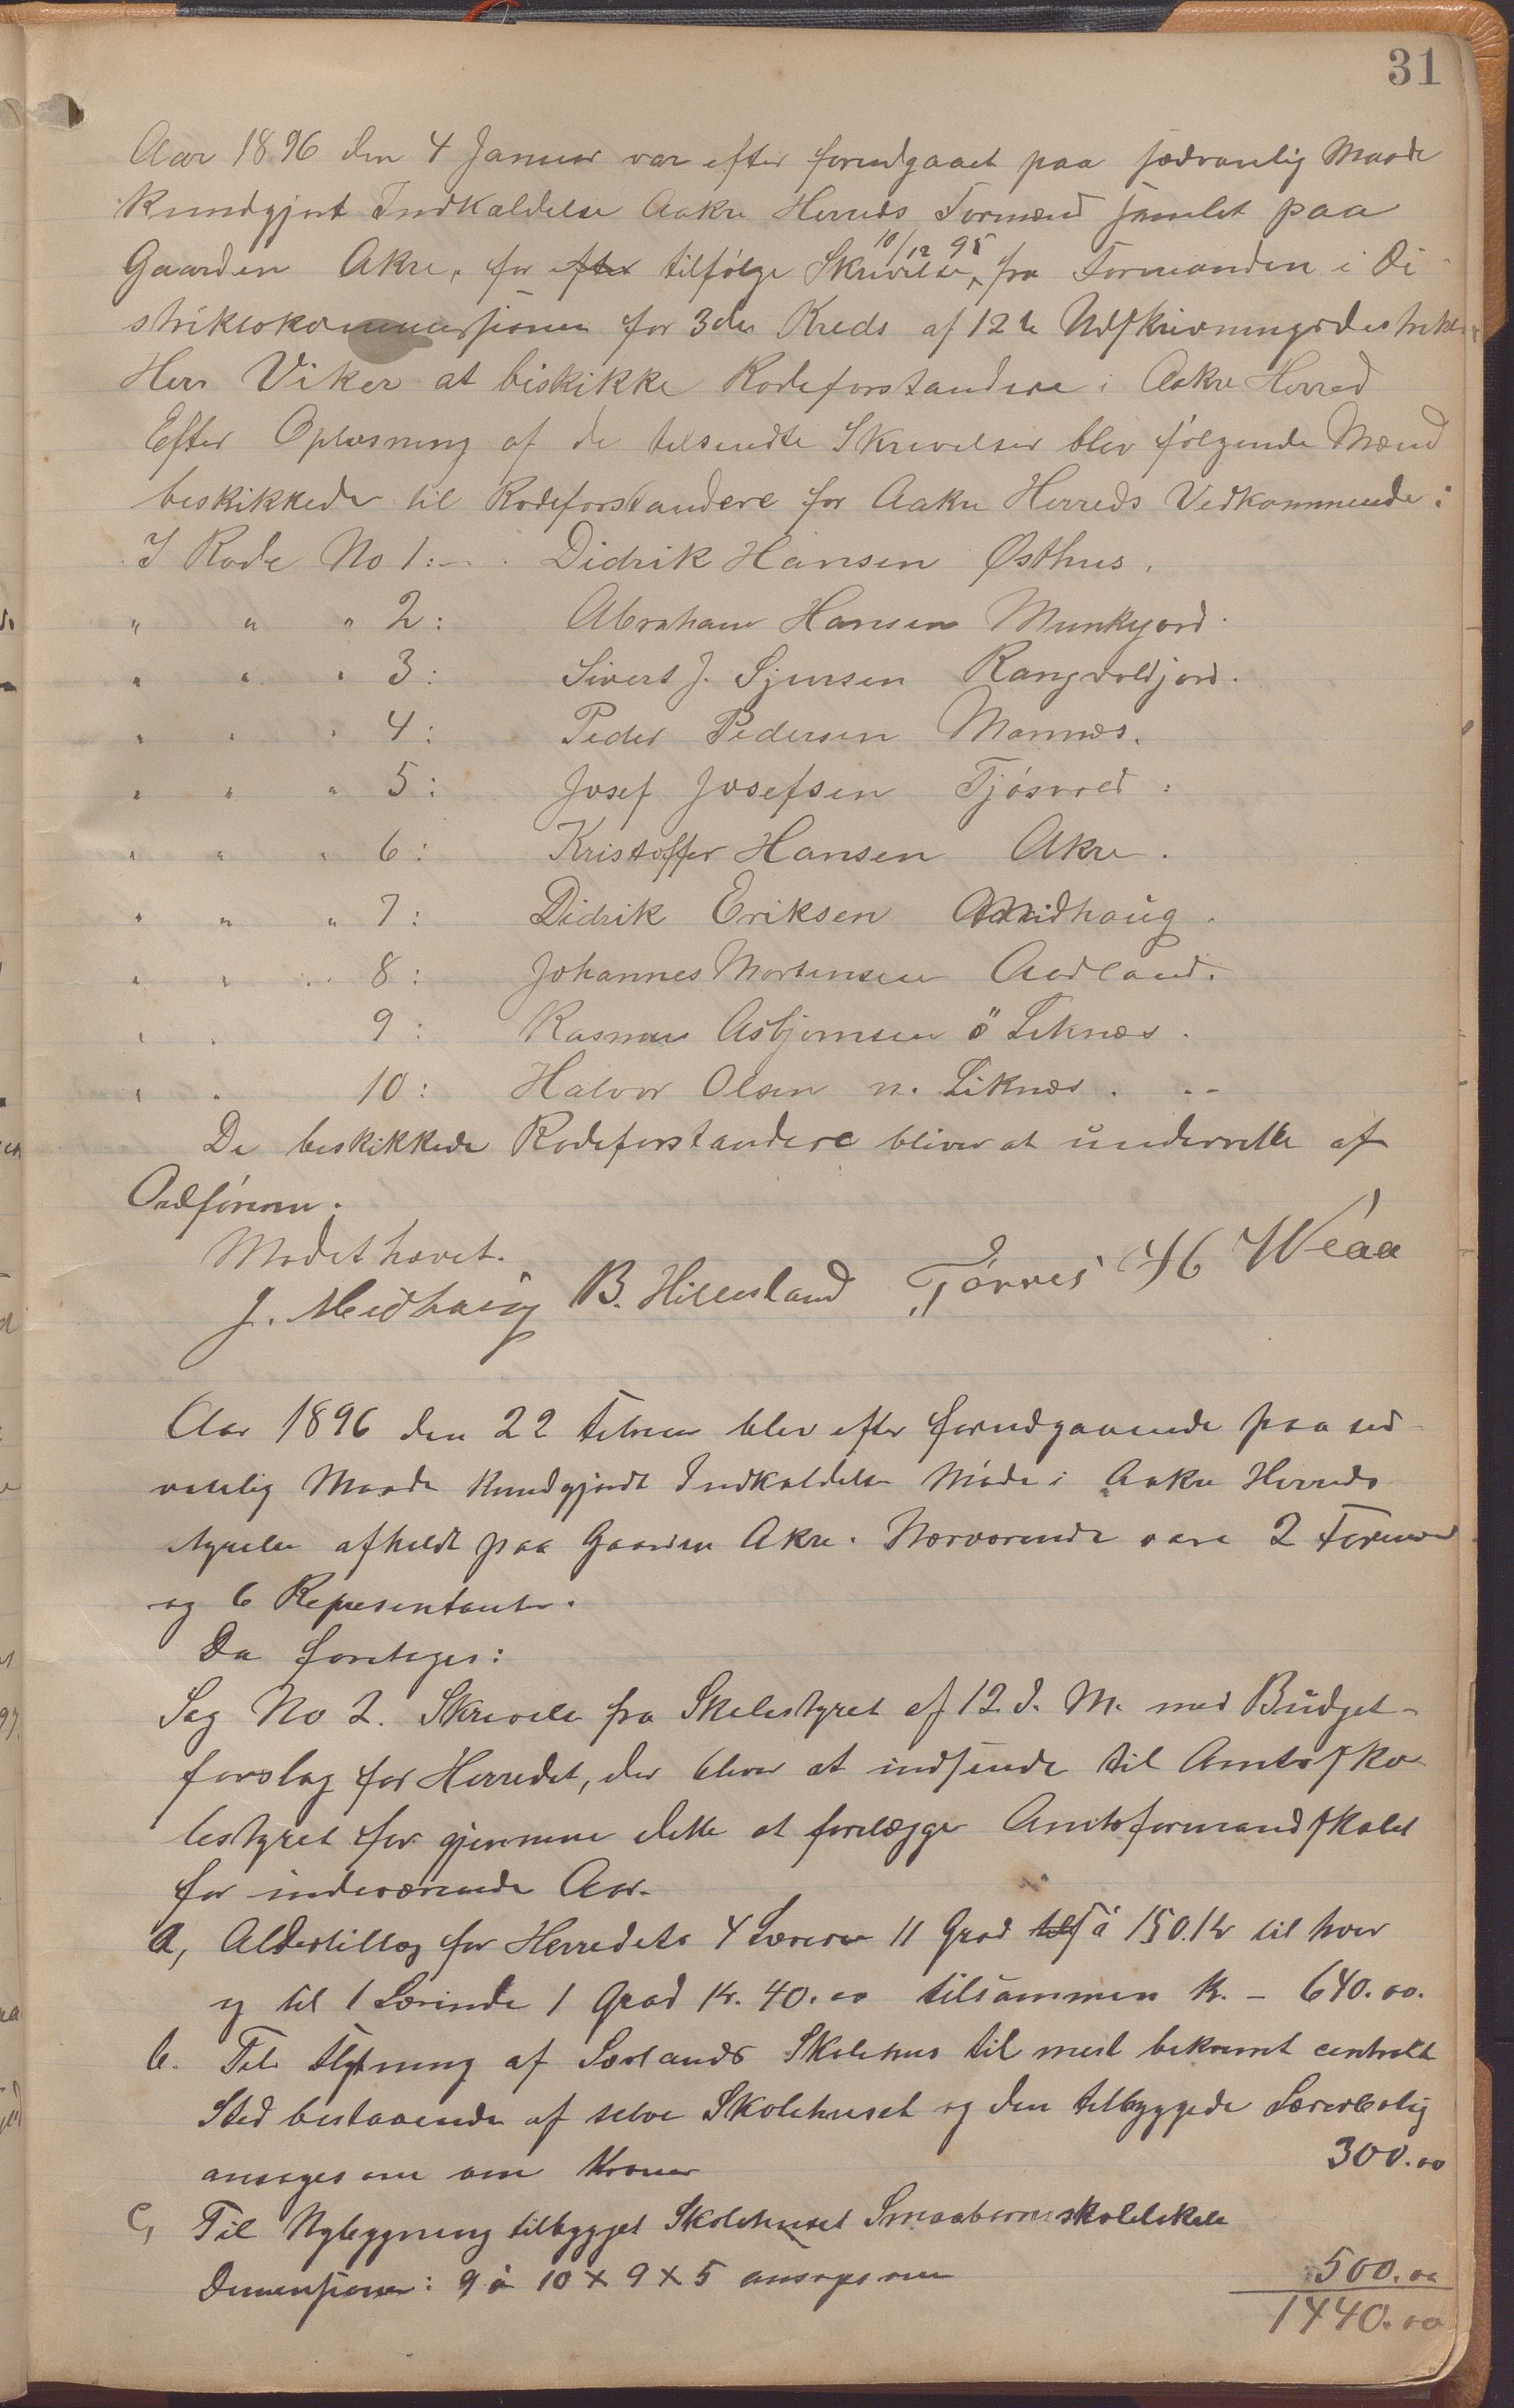 31
Aar 1896 den 4 Januar var efter forudgaaet paa sædvanlig Maade
Kundgjort Indkaldelse Aakre Herreds Formænd samlet paa
Gaarden Akre, for efter tilfølge Skrivelse 10/12 95 fra Formanden i Di-
striktskommissionen for 3die Kreds af 12te Udskrivningsdistrikt
Herr Viker at biskikke Rodeforstandere i Aakre Herred
Efter Oplæsning af de tilsendte Skrivelser blev følgende Mænd
beskikkede til Rodeforstandere for Aakre Herreds Vedkommende:
I Rode No 1: Didrik Hansen Østhus.
" " " 2: Abraham Hansen Munkejord.
" " " 3: Sivert J. Sjursen Rangvoldjord.
" " " 4: Peder Pedersen Mannæs.
" " " 5: Josef Josefsen Tjøsvold:
" " " 6: Kristoffer Hansen Akre.
" " " 7: Didrik Eriksen Midhaug.
" " " 8: Johannes Mortensen Aadland.
" " 9: Rasmus Asbjørnsen ö Liknæs.
" " 10: Halvor Olsen n. Liknæs.
De beskikkede Rodeforstandere bliver at underrette af
Ordføreren.
Mødet hævet.
J. Medhaug B. Hillesland Tørres H Weaa
Aar 1896 den 22 Februar blev efter forudgaaende paa sed-
vanlig Maade Kundgjordt Indkaldelse Møde i Aakre Herreds
styrelse afholdt paa Gaarden Akre. Nærværende vare 2 Formænd
og 6 Repesentanter.
Da foretoges:
Sag No 2. Skrivelse fra Skolestyret af 12 d. M. med Budget-
forslag for Herredet, der bliver at indsende til Amtssko-
lestyret for gjennem dette at forelægge Amtsformandskabet
for indeværende Aar.
a, Alderstillæg for Herredets 4 Lærere 11 Grad til á 150.Kr til hver
og til 1 Lærinde 1 Grad Kr. 40.00 tilsammen Kr. - 640.00.
b. Til Flytning af Sørlands Skolehus til mest bekvemt centralt
Sted bestaaende af selve Skolehuset og den tilbyggede Lærerbolig
ansøges om om Kroner 300.00
C, Til Nybygning tilbygget Skolehuset Smaabørnsskolelokale
Dimensioner: 9 á 10 x 9 x 5 ansøges om 500.00
1440.00